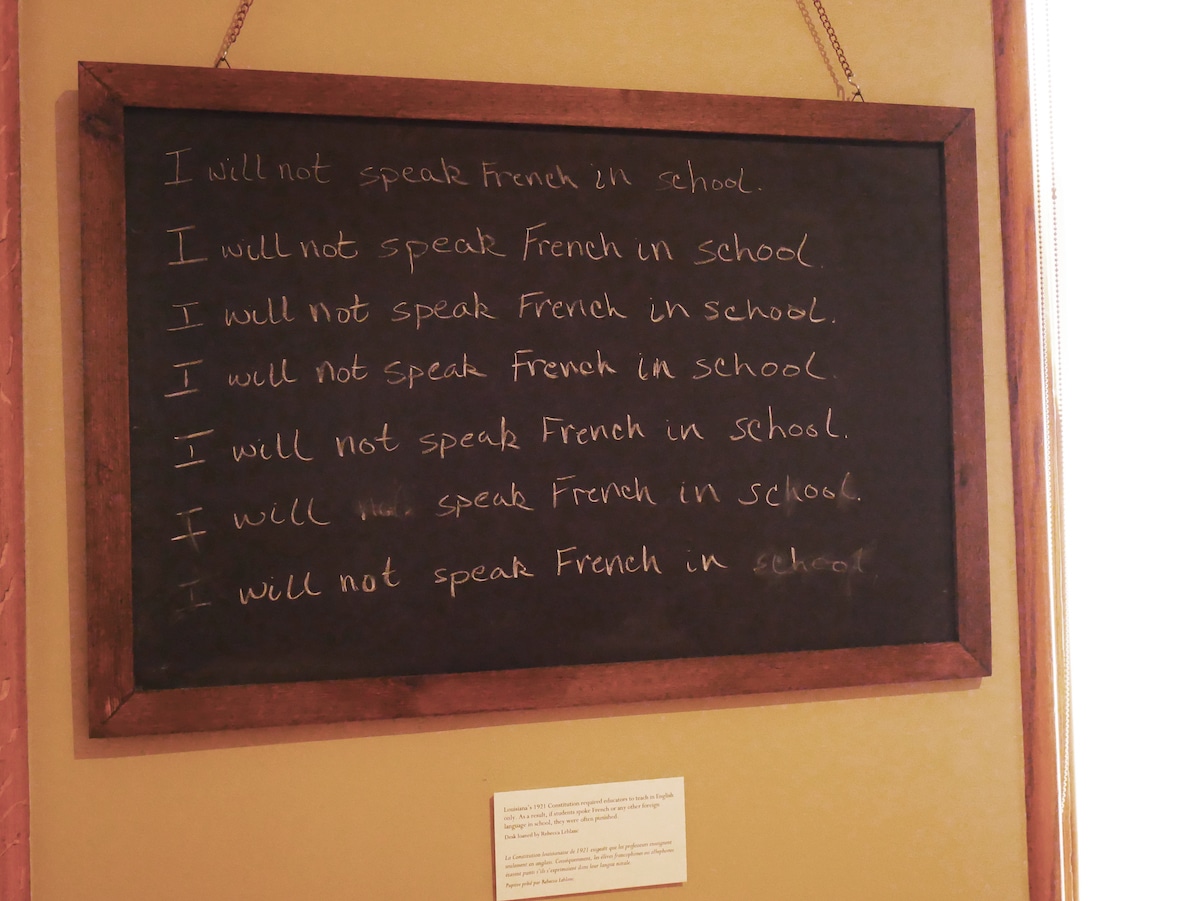 I will not speak French in school.
I will not speak French in school.
I will not speak French in school.
I will not speak French in school.
I will not speak French in school.
I will not speak French in school.
I will not speak French in school.
Louisiana's 1921 Constitution required educators to teach in English
only. As a result, if students spoke French or any other foreign
language in school, they were often punished.
Desk loaned by Rebecca Leblanc
La Constitution louisianaise de 1921 exigeait que les professeurs enseignent
seulement en anglais. Conséquemment, les élèves francophones ou allophones
étaient punis s'ils s'exprimaient dans leur langue natale.
Pupitre prêté par Rebecca Leblanc